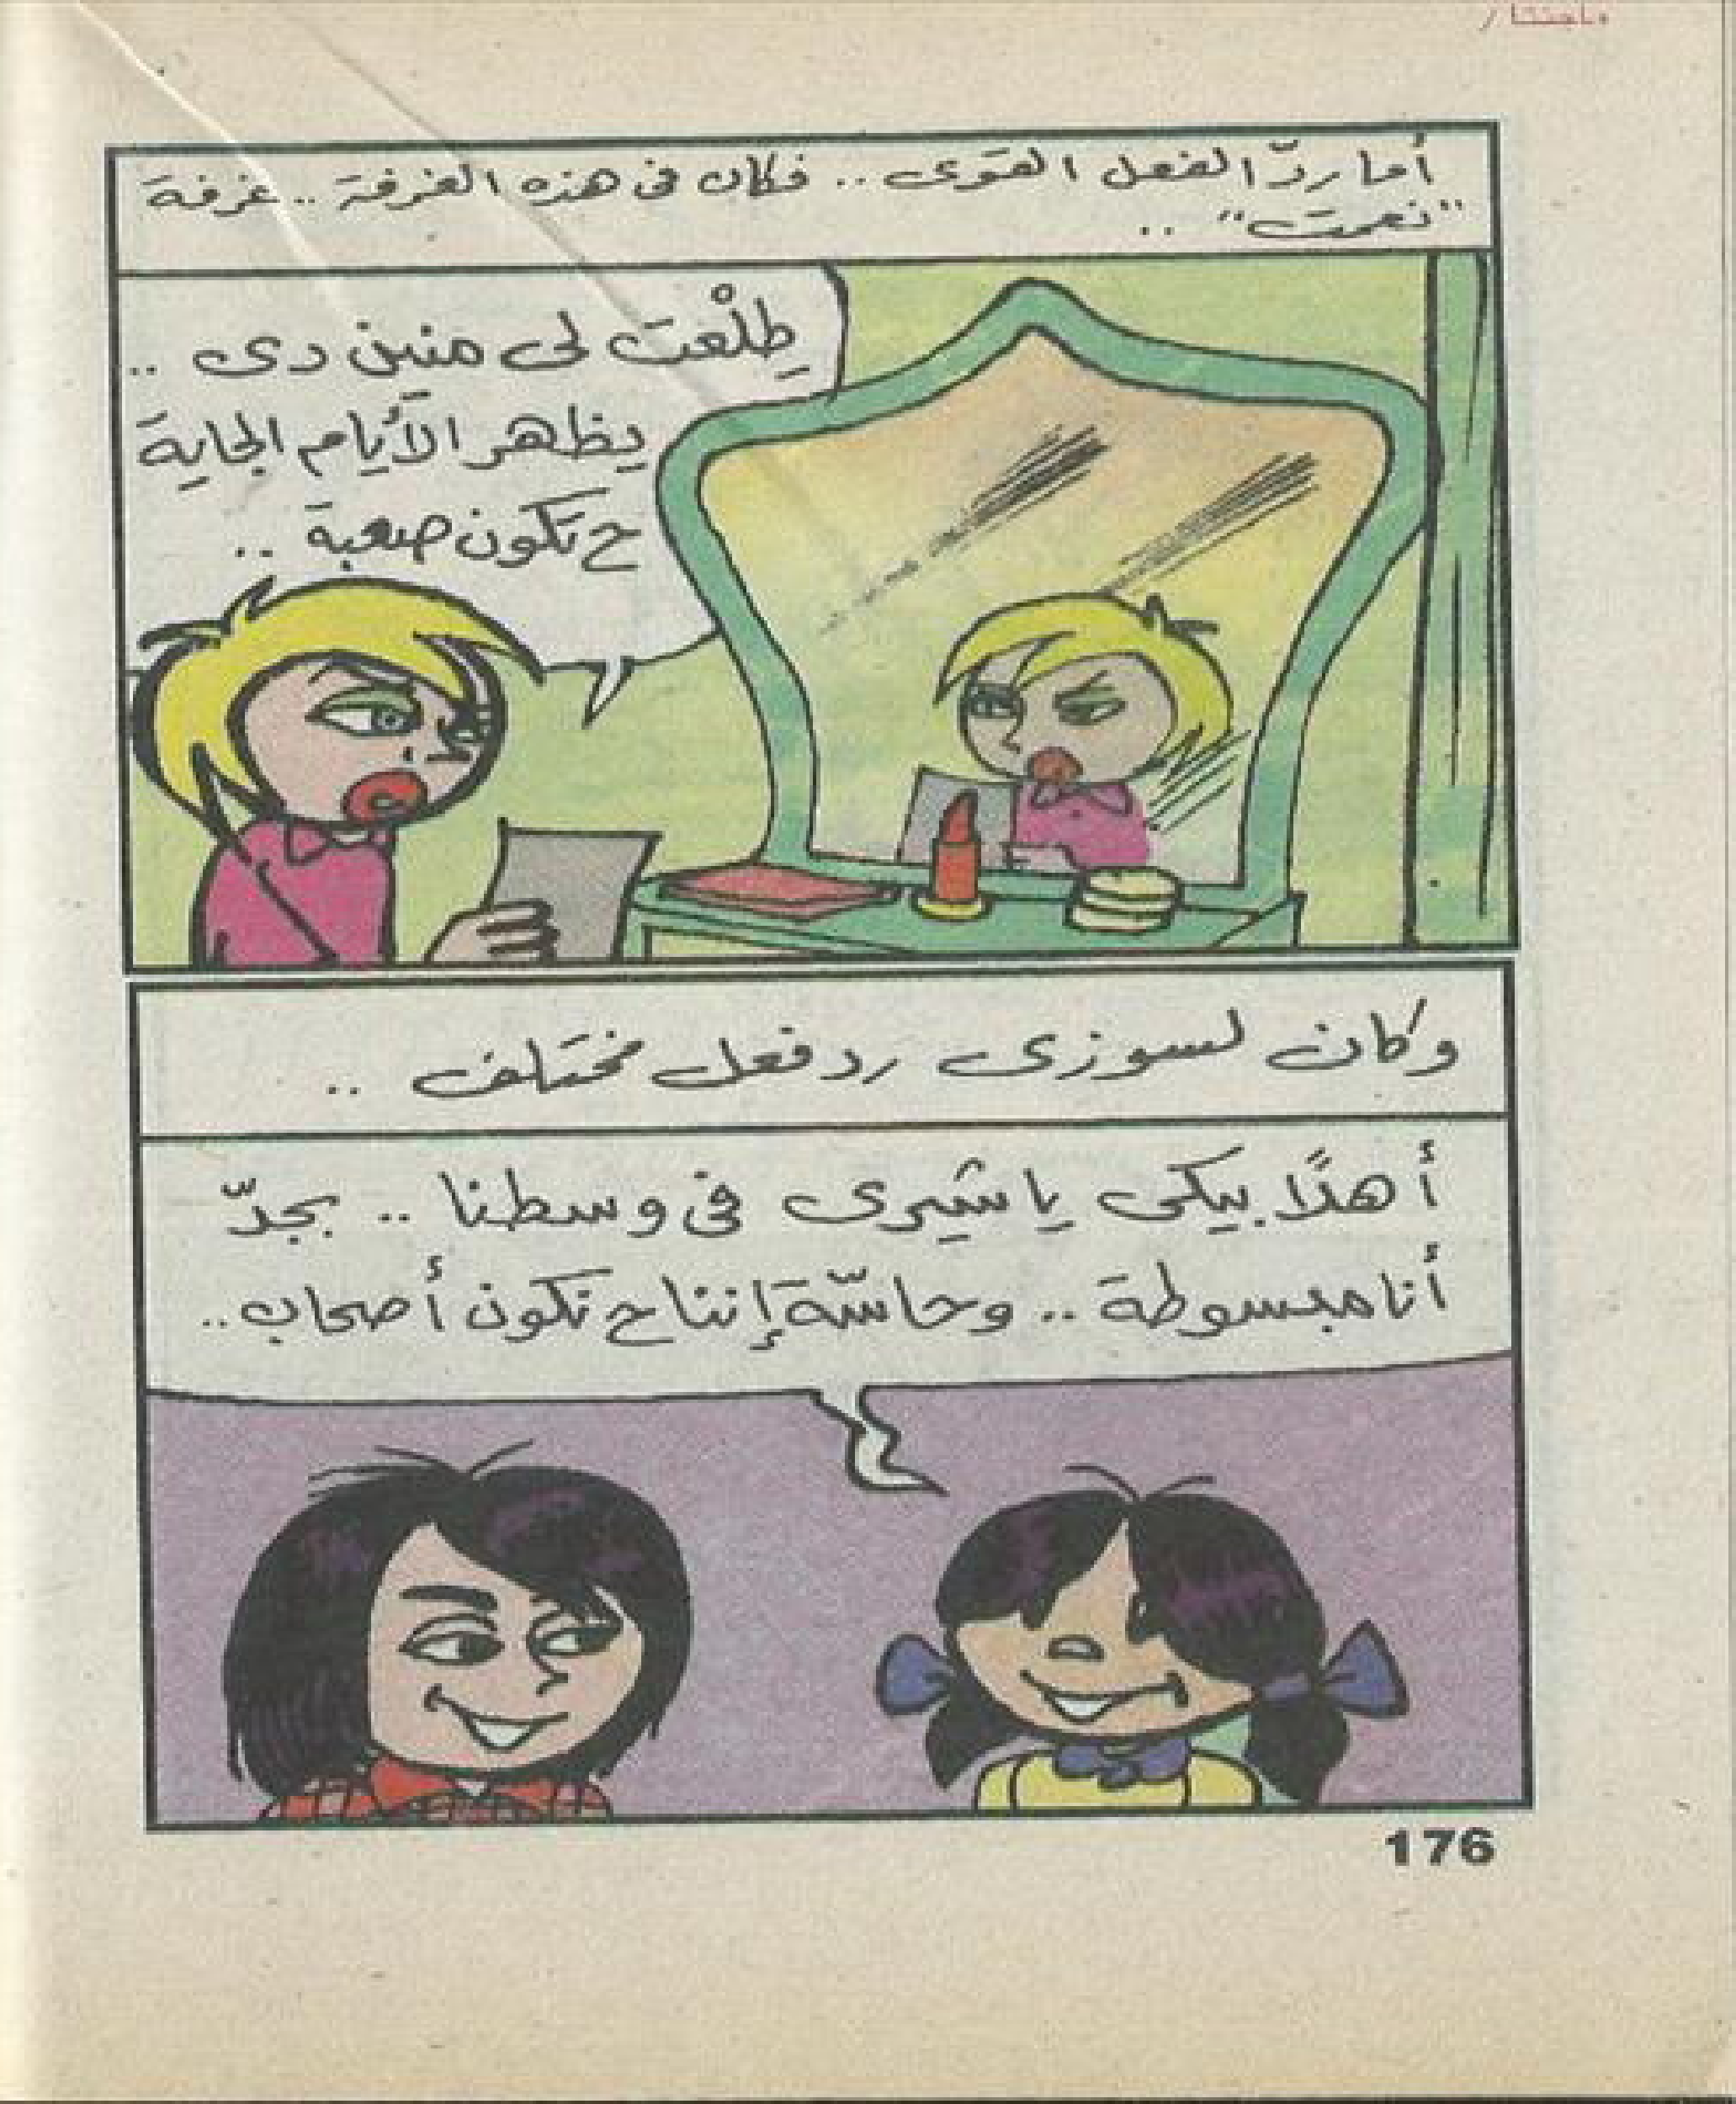 أما ردّ الفعل القوى .. فكان فى هذه الغرفة .. غرفة
"نعمت" ..
طِلْعت لى منين دى ..
يظهر الأيام الجاية
ح تكون صعبة ..
وكان لسوزى رد فعل مختلف ..
أهلًا بيكى يا شيرى فى وسطنا .. بجدّ
أنا مبسوطة .. وحاسّة إننا ح نكون أصحاب ..
176